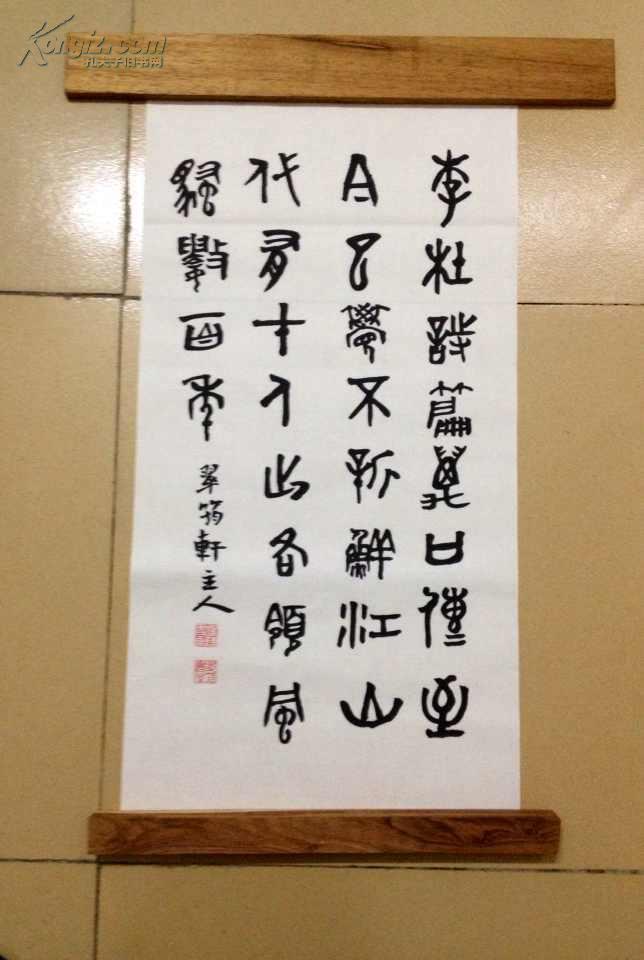 Kongfz.com
孔夫子旧书网
李杜詩篇萬口傳至
今已覺不新鮮江山
代有才人出各領風
騷數百年
翠筠軒主人